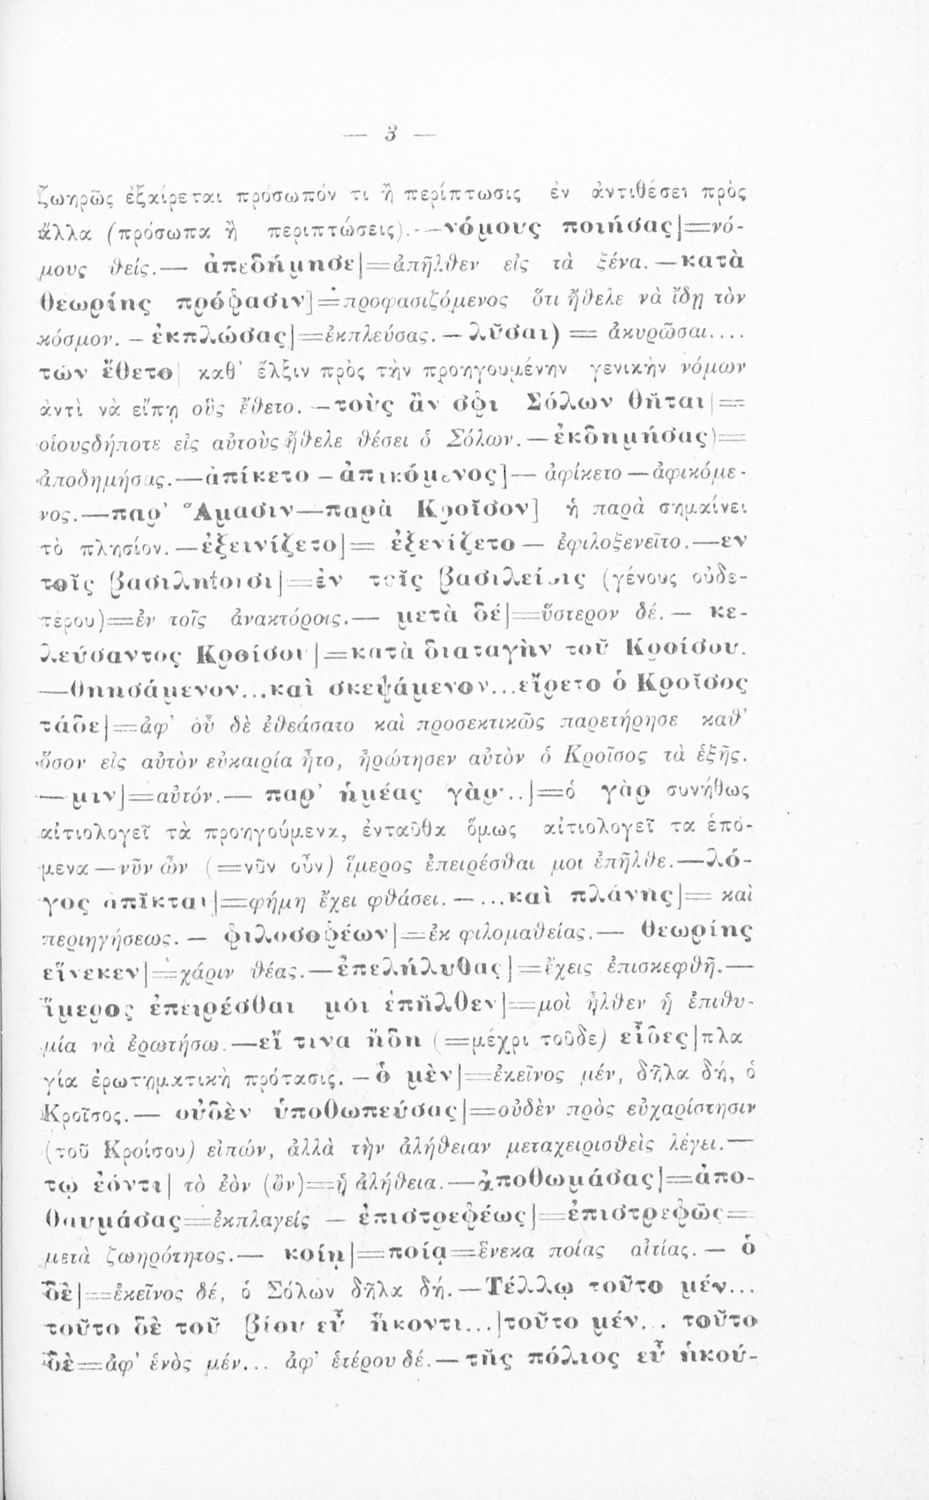 — 3 —
ζωηρῶς ἐξαίρεται πρόσωπόν τι ἢ περίπτωσις ἐν ἀντιθέσει πρὸς
ἄλλα (πρόσωπα ἢ περιπτώσεις).—νόμους ποιήσας]=νό-
μους θείς.— ἀπεδήμησε]=ἀπῆλθεν εἰς τὰ ξένα.—κατὰ
θεωρίης πρόφασιν]=προφασιζόμενος ὅτι ἤθελε νὰ ἴδῃ τὸν
κόσμον. — ἐκπλώσας]=ἐκπλεύσας. — λῦσαι) = ἀκυρῶσαι....
τῶν ἔθετο] καθ' ἕλξιν πρὸς τὴν προηγουμένην γενικὴν νόμων
ἀντὶ νὰ εἴπῃ οὓς ἔθετο. —τοὺς ἄν σφι Σόλων θῆται]=
οἱουςδήποτε εἰς αὐτοὺς ἤθελε θέσει ὁ Σόλων.—ἐκδημήσας)=
ἀποδημήσας.—ἀπίκετο — ἀπικόμενος]— ἀφίκετο—ἀφικόμε-
νος.—παρ' Ἄμασιν—παρὰ Κροῖσον] ἡ παρὰ σημαίνει
τὸ πλησίον.—ἐξεινίζετο]= ἐξενίζετο— ἐφιλοξενεῖτο.—εν
τοῖς βασιληΐοισι]=ἐν τοῖς βασιλείοις (γένους οὐδε-
τέρου)=ἐν τοῖς ἀνακτόροις.— μετὰ δέ]=ὕστερον δέ.— κε-
λεύσαντος Κροίσου]=κατὰ διαταγὴν τοῦ Κροίσου.
—θηησάμενον...καὶ σκεψάμενον...εἴρετο ὁ Κροῖσος
τάδε]=ἀφ' οὗ δὲ ἐθεάσατο καὶ προσεκτικῶς παρετήρησε καθ'
ὅσον εἰς αὐτὸν εὐκαιρία ἦτο, ἠρώτησεν αὐτὸν ὁ Κροῖσος τὰ ἑξῆς.
—μιν]=αὐτόν.— παρ' ἡμέας γὰρ...]=ὁ γὰρ συνήθως
αἰτιολογεῖ τὰ προηγούμενα, ἐνταῦθα ὅμως αἰτιολογεῖ τα ἑπό-
μενα—νῦν ὦν (=νῦν οὖν) ἵμερος ἐπειρέσθαι μοι ἐπῆλθε.—λό-
γος ἀπῖκται]=φήμη ἔχει φθάσει.—...καὶ πλάνης]= καὶ
περιηγήσεως. — φιλοσοφέων]=ἐκ φιλομαθείας.— θεωρίης
εἵνεκεν]=χάριν θέας.—ἐπελήλυθας]=ἔχεις ἐπισκεφθῆ.—
ἵμερος ἐπειρέσθαι μοι ἐπῆλθεν]=μοὶ ἦλθεν ἡ ἐπιθυ-
μία νὰ ἐρωτήσω.—εἴ τινα ἤδη (=μέχρι τοῦδε) εἶδες]πλα
γία ἐρωτηματικὴ πρότασις.—ὁ μὲν]=ἐκεῖνος μέν, δῆλα δή, ὁ
Κροῖσος.— οὐδὲν ὑποθωπεύσας]=οὐδὲν πρὸς εὐχαρίστησιν
(τοῦ Κροίσου) εἰπών, ἀλλὰ τὴν ἀλήθειαν μεταχειρισθεὶς λέγει.—
τῳ ἐόντι] τὸ ἐὸν (ὂν)=ἡ ἀλήθεια.—ἀποθωμάσας]=ἀπο-
θαυμάσας=ἐκπλαγείς — ἐπιστρεφέως]=ἐπιστρεφῶς=
μετὰ ζωηρότητος.— κοίῃ]=ποίᾳ=ἕνεκα ποίας αἰτίας.— ὁ
δὲ]=ἐκεῖνος δέ, ὁ Σόλων δῆλα δή.—Τέλλῳ τοῦτο μέν...
τοῦτο δὲ τοῦ βίου εὖ ἥκοντι...]τοῦτο μέν... τοῦτο
δὲ=ἀφ' ἑνὸς μέν... ἀφ' ἑτέρου δέ.—τῆς πόλιος εὖ ἡκού-